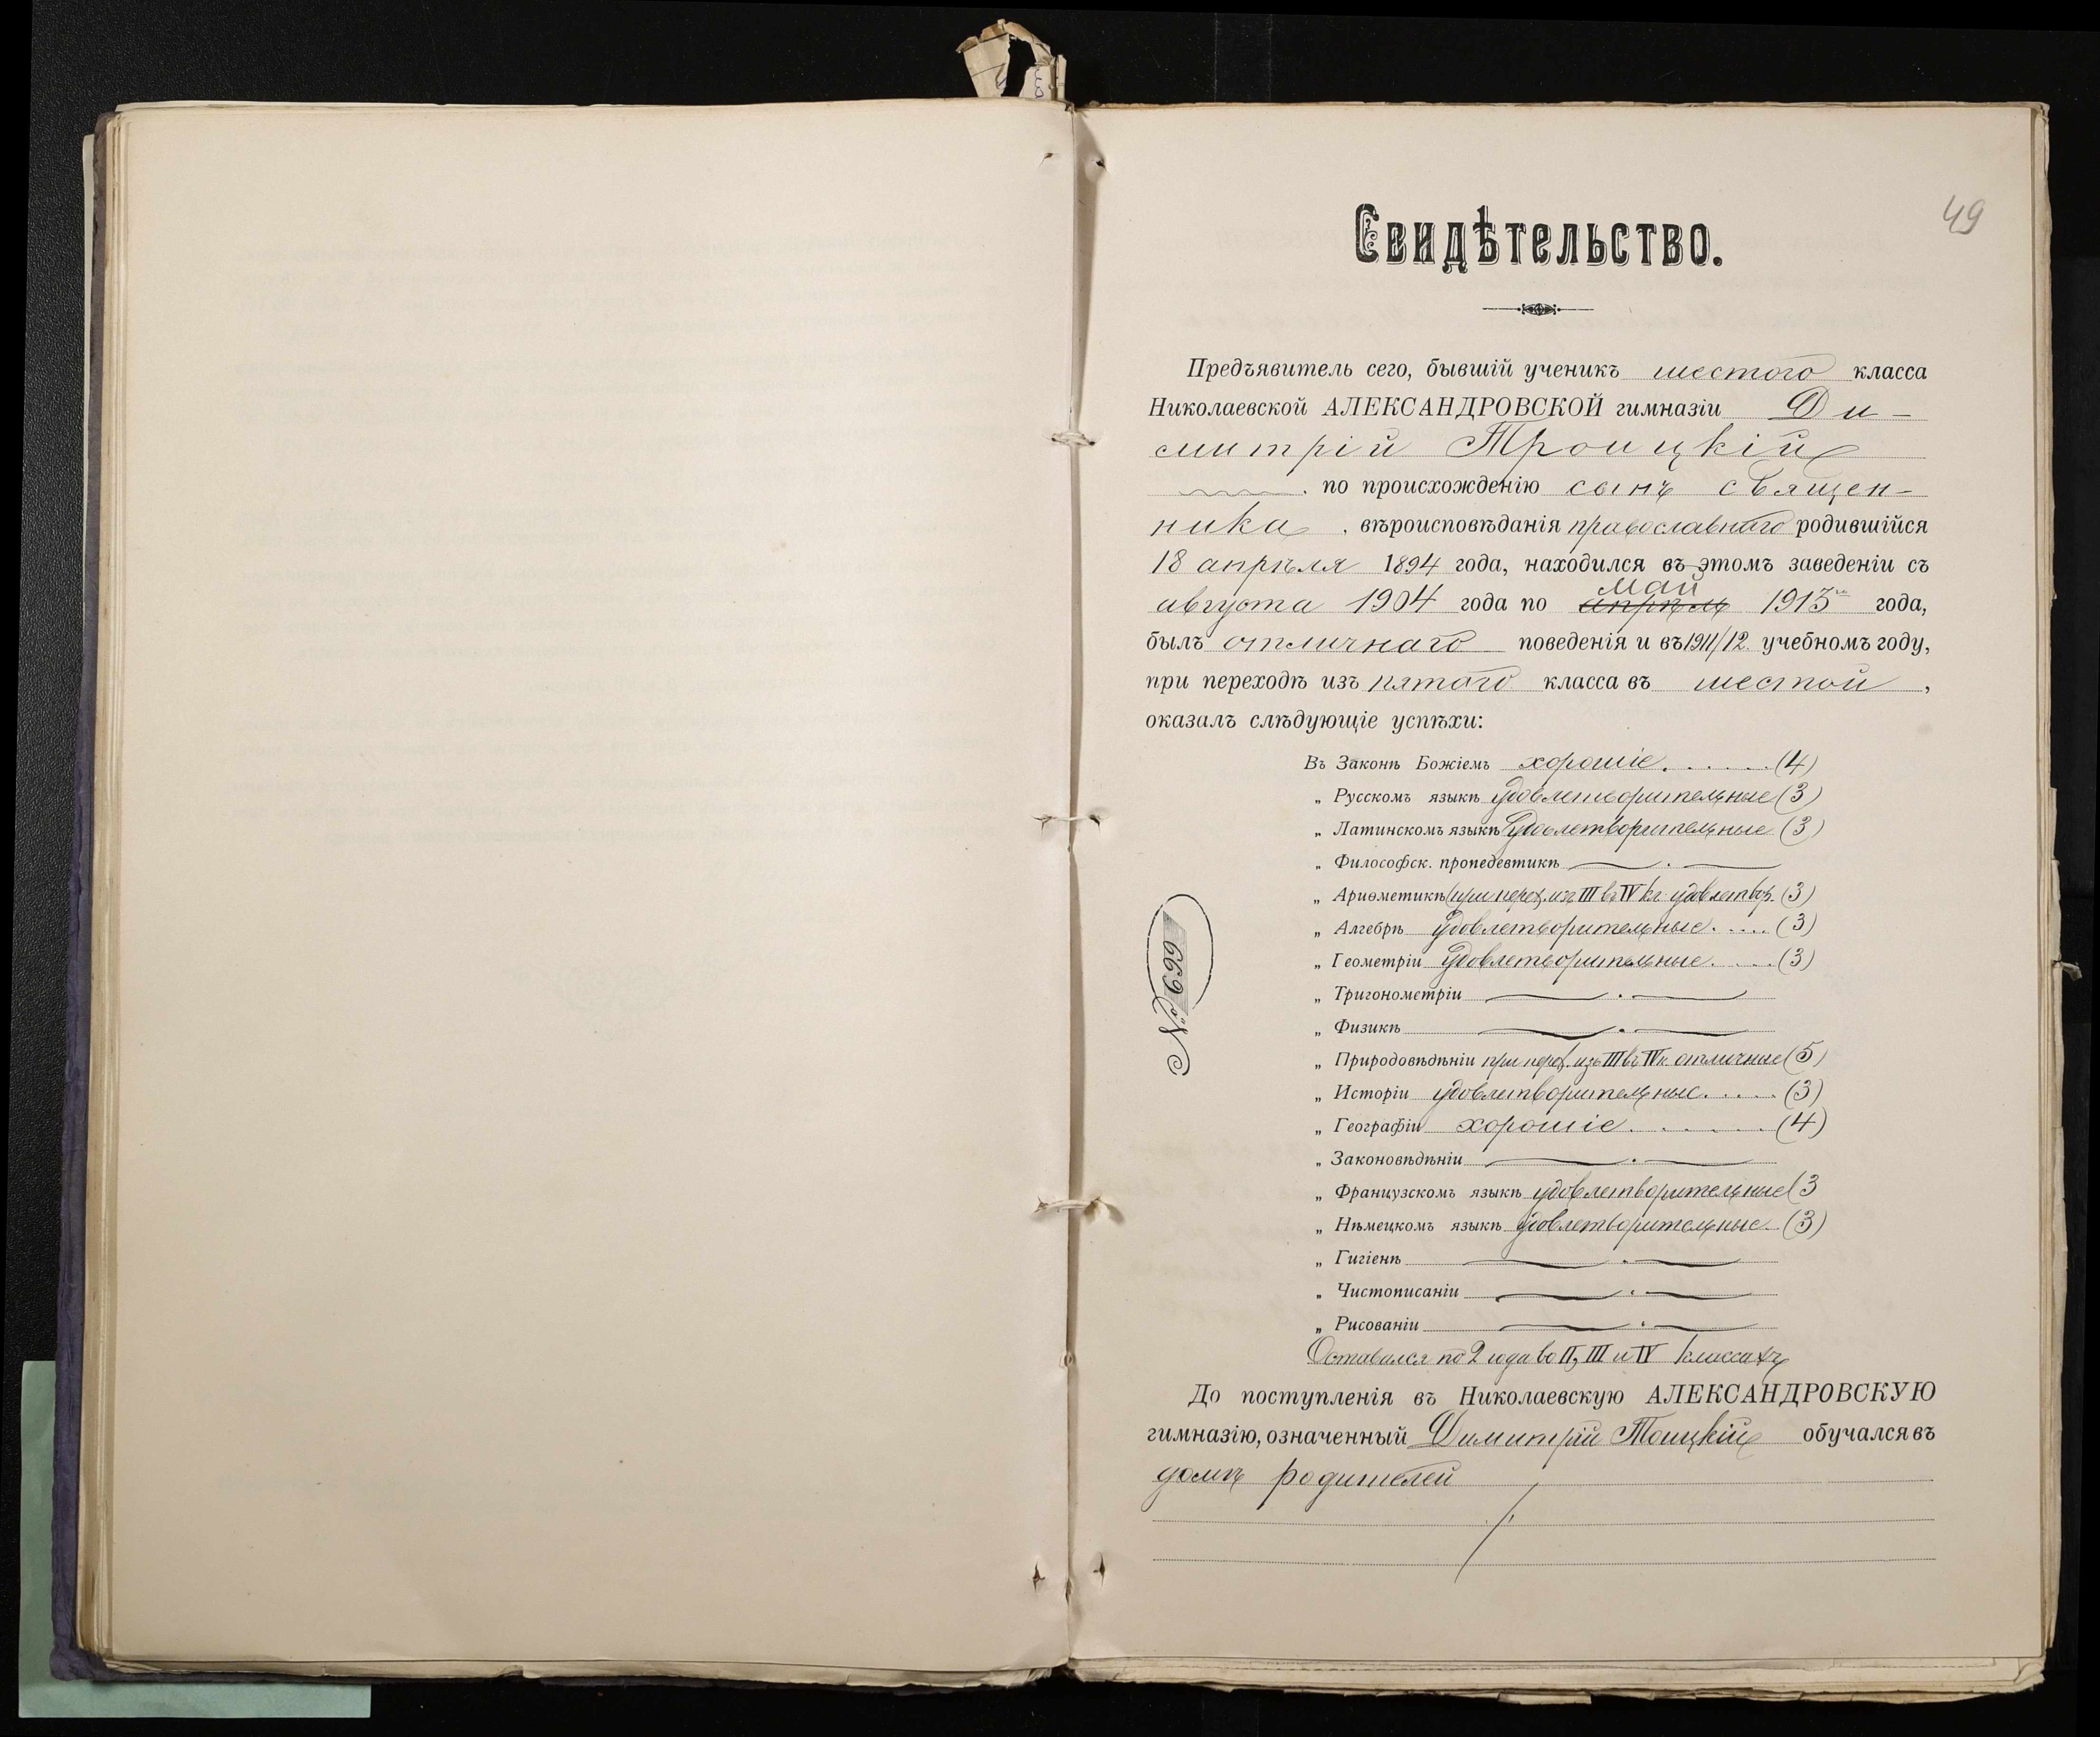 49
Свидѣтельство.
Предъявитель сего, бывшій ученикъ шестого класса
Николаевской АЛЕКСАНДРОВСКОЙ гимназіи Ди-
митрій Троицкій
по происхожденію сынъ священ-
ника, вѣроисповѣданія православнаго родившійся
18 апрѣля 1894 года, находился въ этомъ заведеніи съ
май
августа 1904 года по апрѣль 1913 года,
былъ отличнаго поведенія и въ 1911/12 учебномъ году,
при переходѣ изъ пятого класса въ шестой,
оказалъ слѣдующіе успѣхи:
Въ Законѣ Божіемъ хорошіе. . . . . . (4)
„ Русскомъ языкѣ удовлетворительные (3)
„ Латинскомъ языкѣ удовлетворительные (3)
„ Философск. пропедевтикѣ — . —
„ Ариѳметикѣ (при перех. изъ III въ IV кл. удовлетвор. (3)
„ Алгебрѣ удовлетворительные. . . . . (3)
„ Геометріи удовлетворительные. . . . (3)
„ Тригонометріи — . —
„ Физикѣ — . —
„ Природовѣдѣніи при перех. изъ III въ IV к. отличные (5)
„ Исторіи удовлетворительные. . . . . (3)
„ Географіи хорошіе. . . . . . (4)
„ Законовѣдѣніи — . —
„ Французскомъ языкѣ удовлетворительные (3
„ Нѣмецкомъ языкѣ удовлетворительные. (3)
„ Гигіенѣ — . —
„ Чистописаніи — . —
„ Рисованіи — . —
Оставался по 2 года во II, III и IV классахъ
До поступленія въ Николаевскую АЛЕКСАНДРОВСКУЮ
гимназію, означенный Димитрій Тоицкій обучался въ
домѣ родителей
№ 699